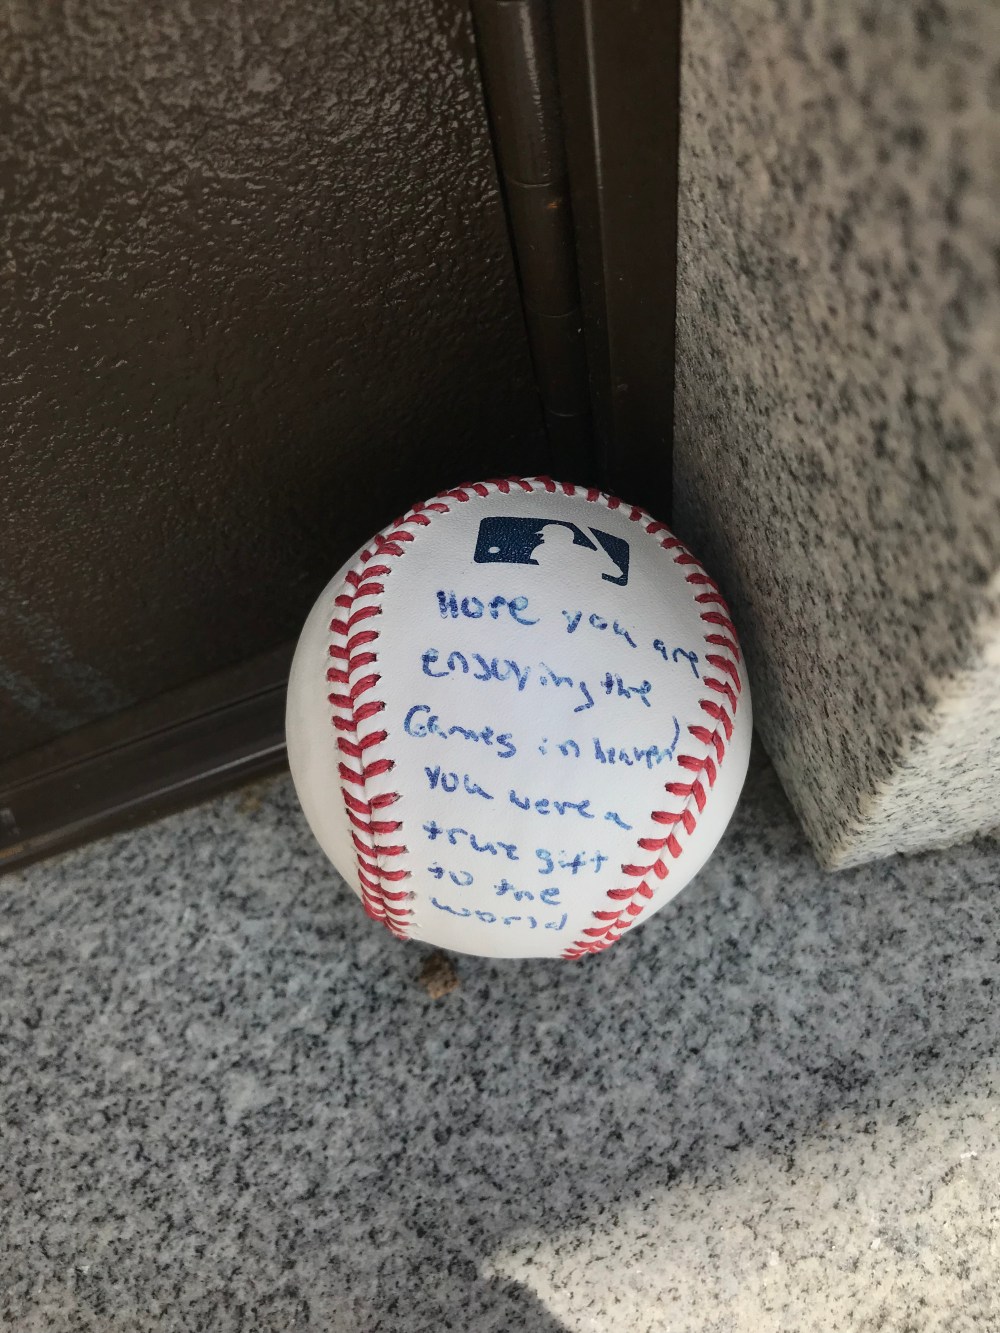 Hope you are
enjoying the
Games in heaven,
you were a
true gift
to the
world